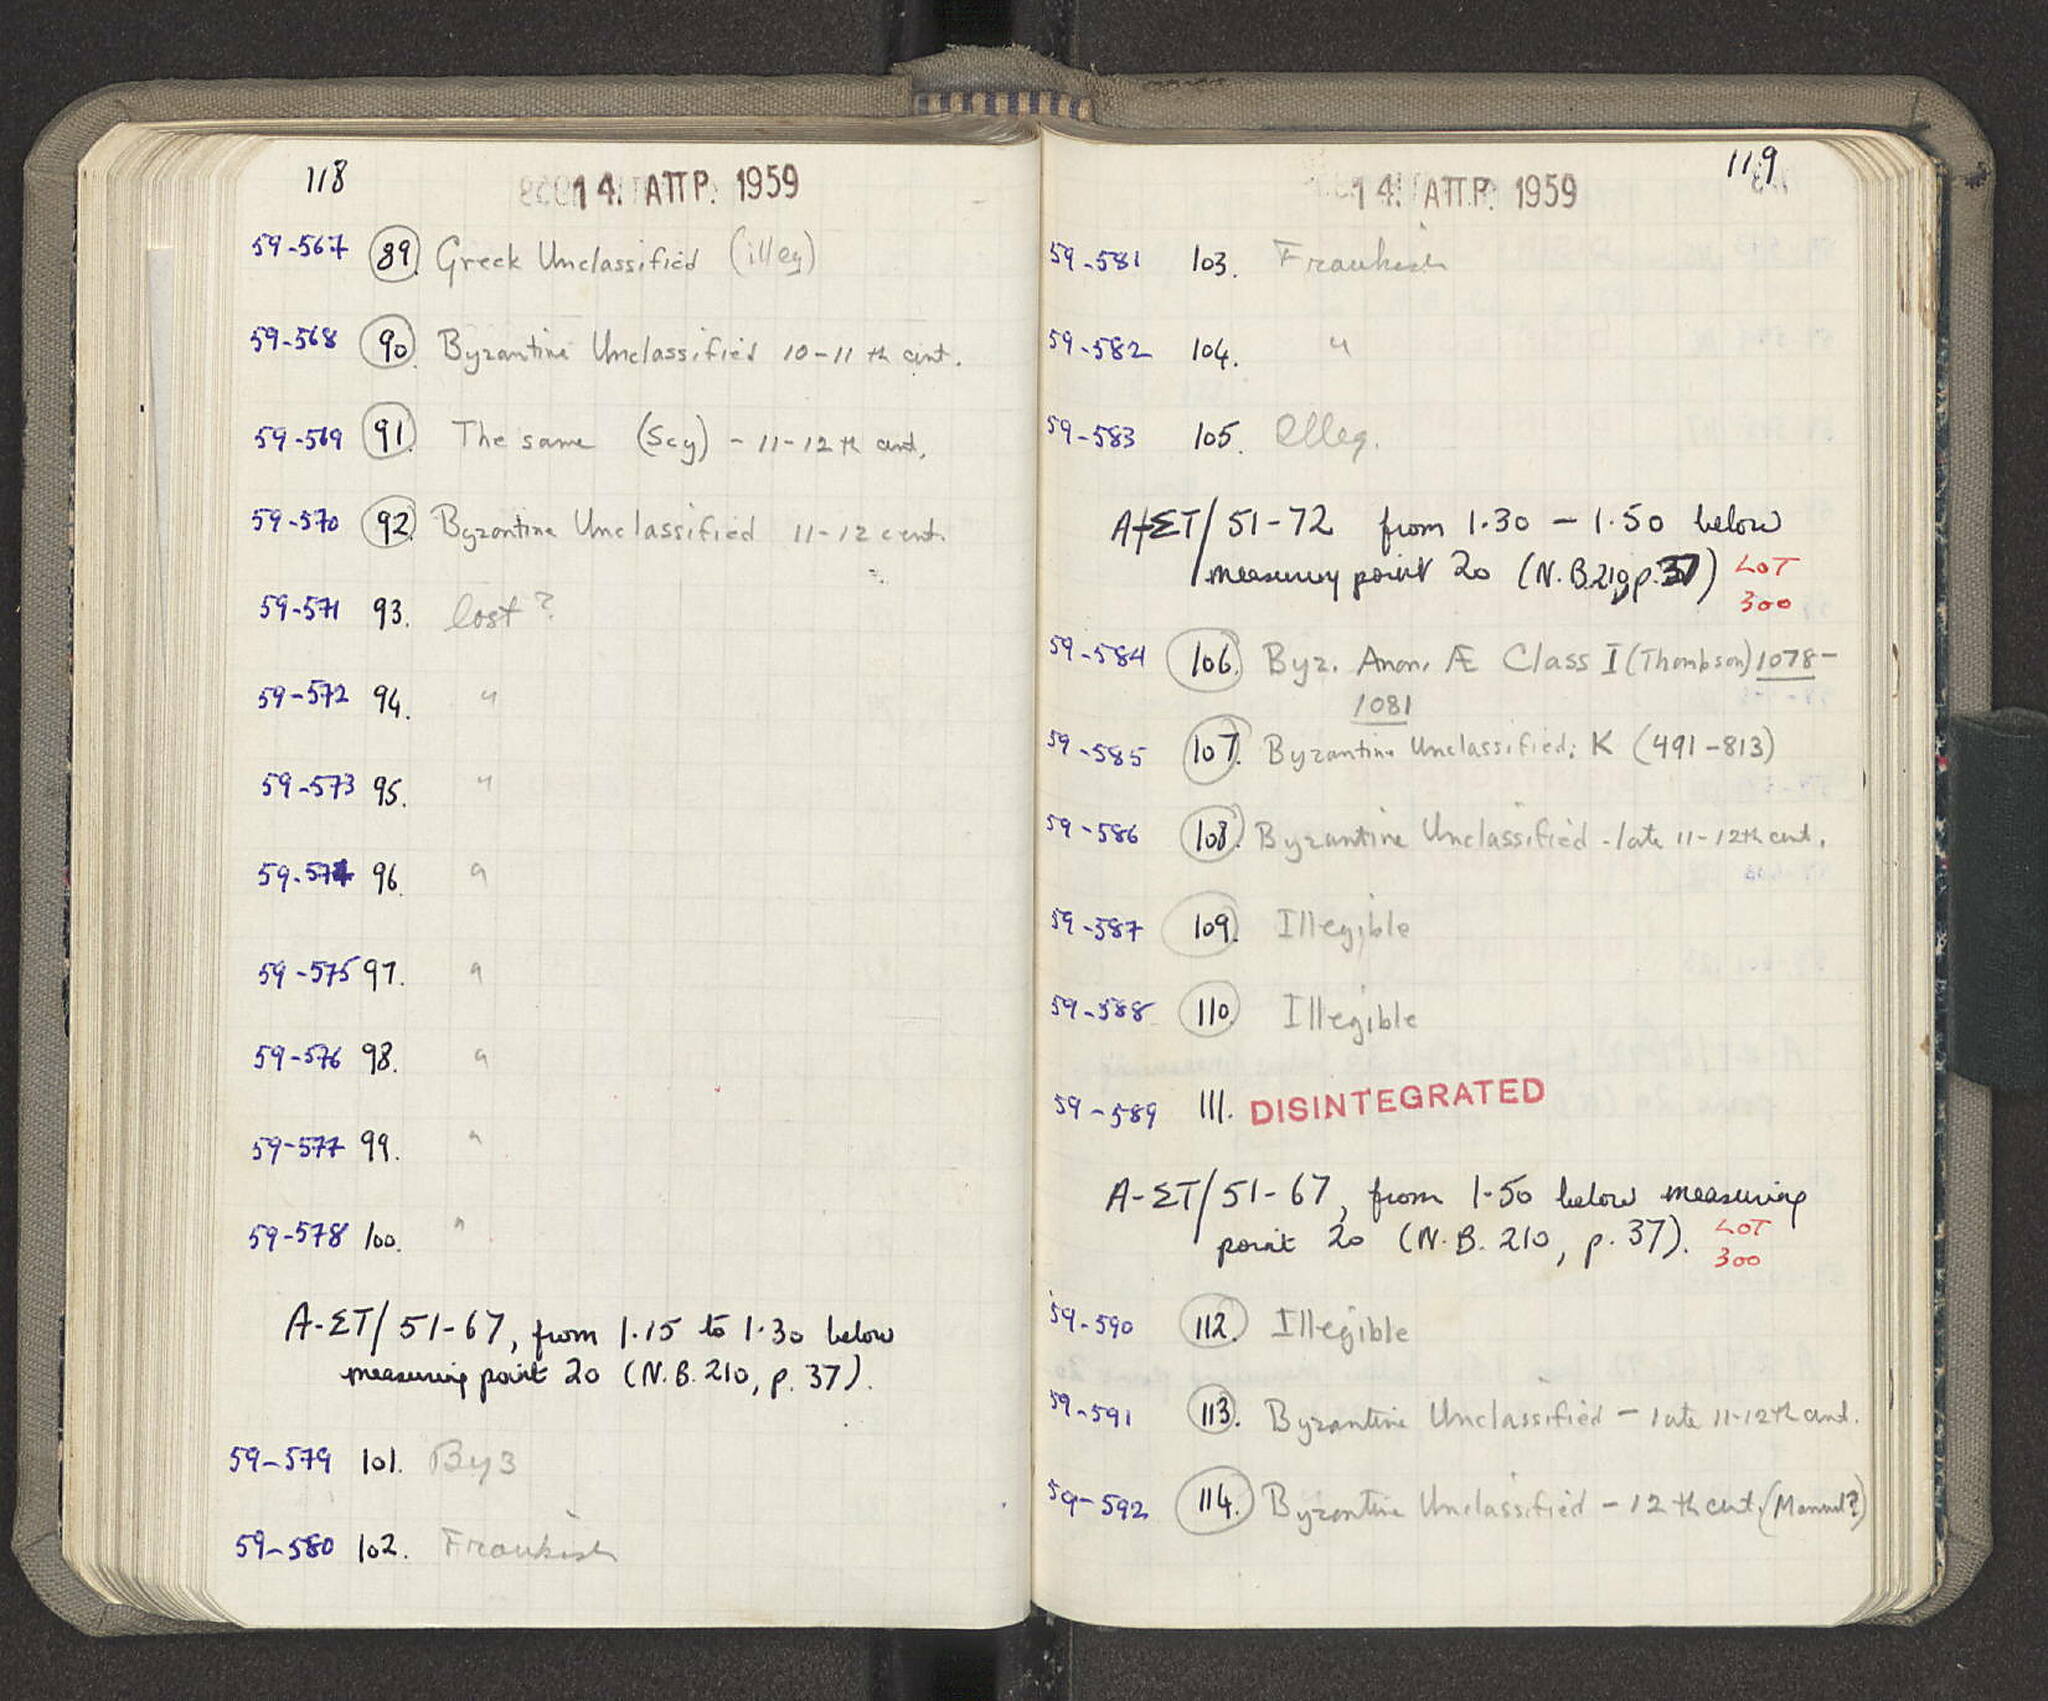 118
14. ΑΠΡ. 1959
59-567 89. Greek Unclassified (illeg)
59-568 90. Byzantine Unclassified 10-11th cent.
59-569 91. The same (Scy) - 11-12th cent.
59-570 92. Byzantine Unclassified 11-12 cent.
59-571 93. lost?
59-572 94. "
59-573 95. "
59-574 96. "
59-575 97. "
59-576 98. "
59-577 99. "
59-578 100. "
A-ΣT/51-67, from 1.15 to 1.30 below
measuring point 20 (N.B. 210, p. 37).
59-579 101. Byz
59-580 102. Frankish
119
14. ΑΠΡ. 1959
59-581 103. Frankish
59-582 104. "
59-583 105. Illeg.
A-ΣT/51-72 from 1.30 - 1.50 below
measuring point 20 (N.B.210, p.37) LOT
300
59-584 106. Byz. Anon. Æ Class I (Thompson) 1078-
1081
59-585 107. Byzantine Unclassified: K (491-813)
59-586 108. Byzantine Unclassified - late 11-12th cent.
59-587 109. Illegible
59-588 110. Illegible
59-589 111. DISINTEGRATED
A-ΣT/51-67, from 1.50 below measuring
point 20 (N.B. 210, p. 37). LOT
300
59-590 112. Illegible
59-591 113. Byzantine Unclassified - late 11-12th cent.
59-592 114. Byzantine Unclassified - 12th cent. (Manuel?)